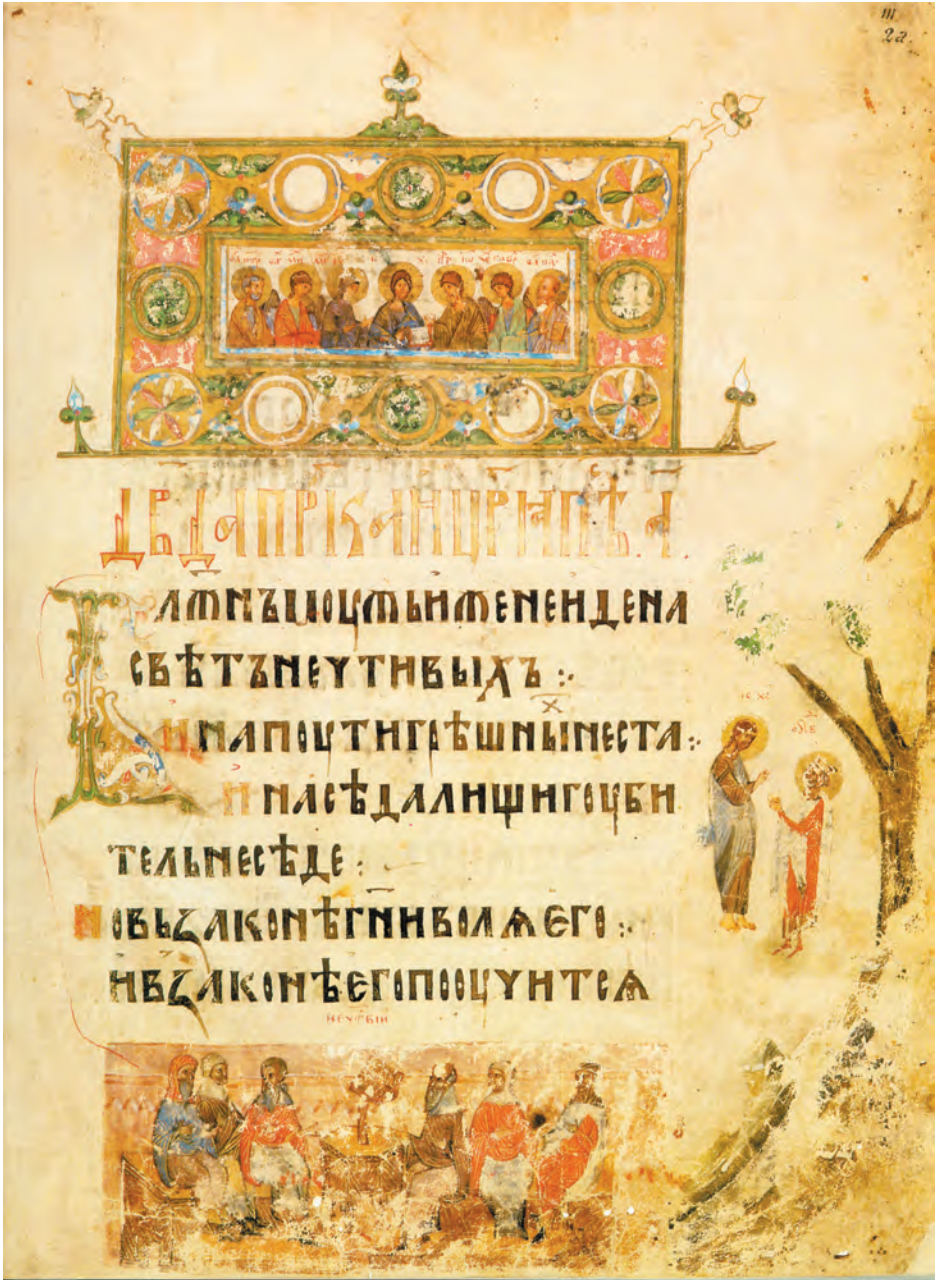 ДВДАПРРКАИЦРѦПѢ.А.
БЛЖНЪМОУЖЬИЖЕНЕИДЕНА
СВѢТЪНЕЧТИВЫХЪ:·
ИНАПОУТИГРѢШНЫХНЕСТА:·
ИНАСѢДАЛИЩИГОУБИ
ТЕЛЬНЕСѢДЕ:
НОВЬЗАКОНѢГНИВОЛѦЕГО:·
ИВЗАКОНѢЕГОПООУЧИТСѦ
ІС ХС